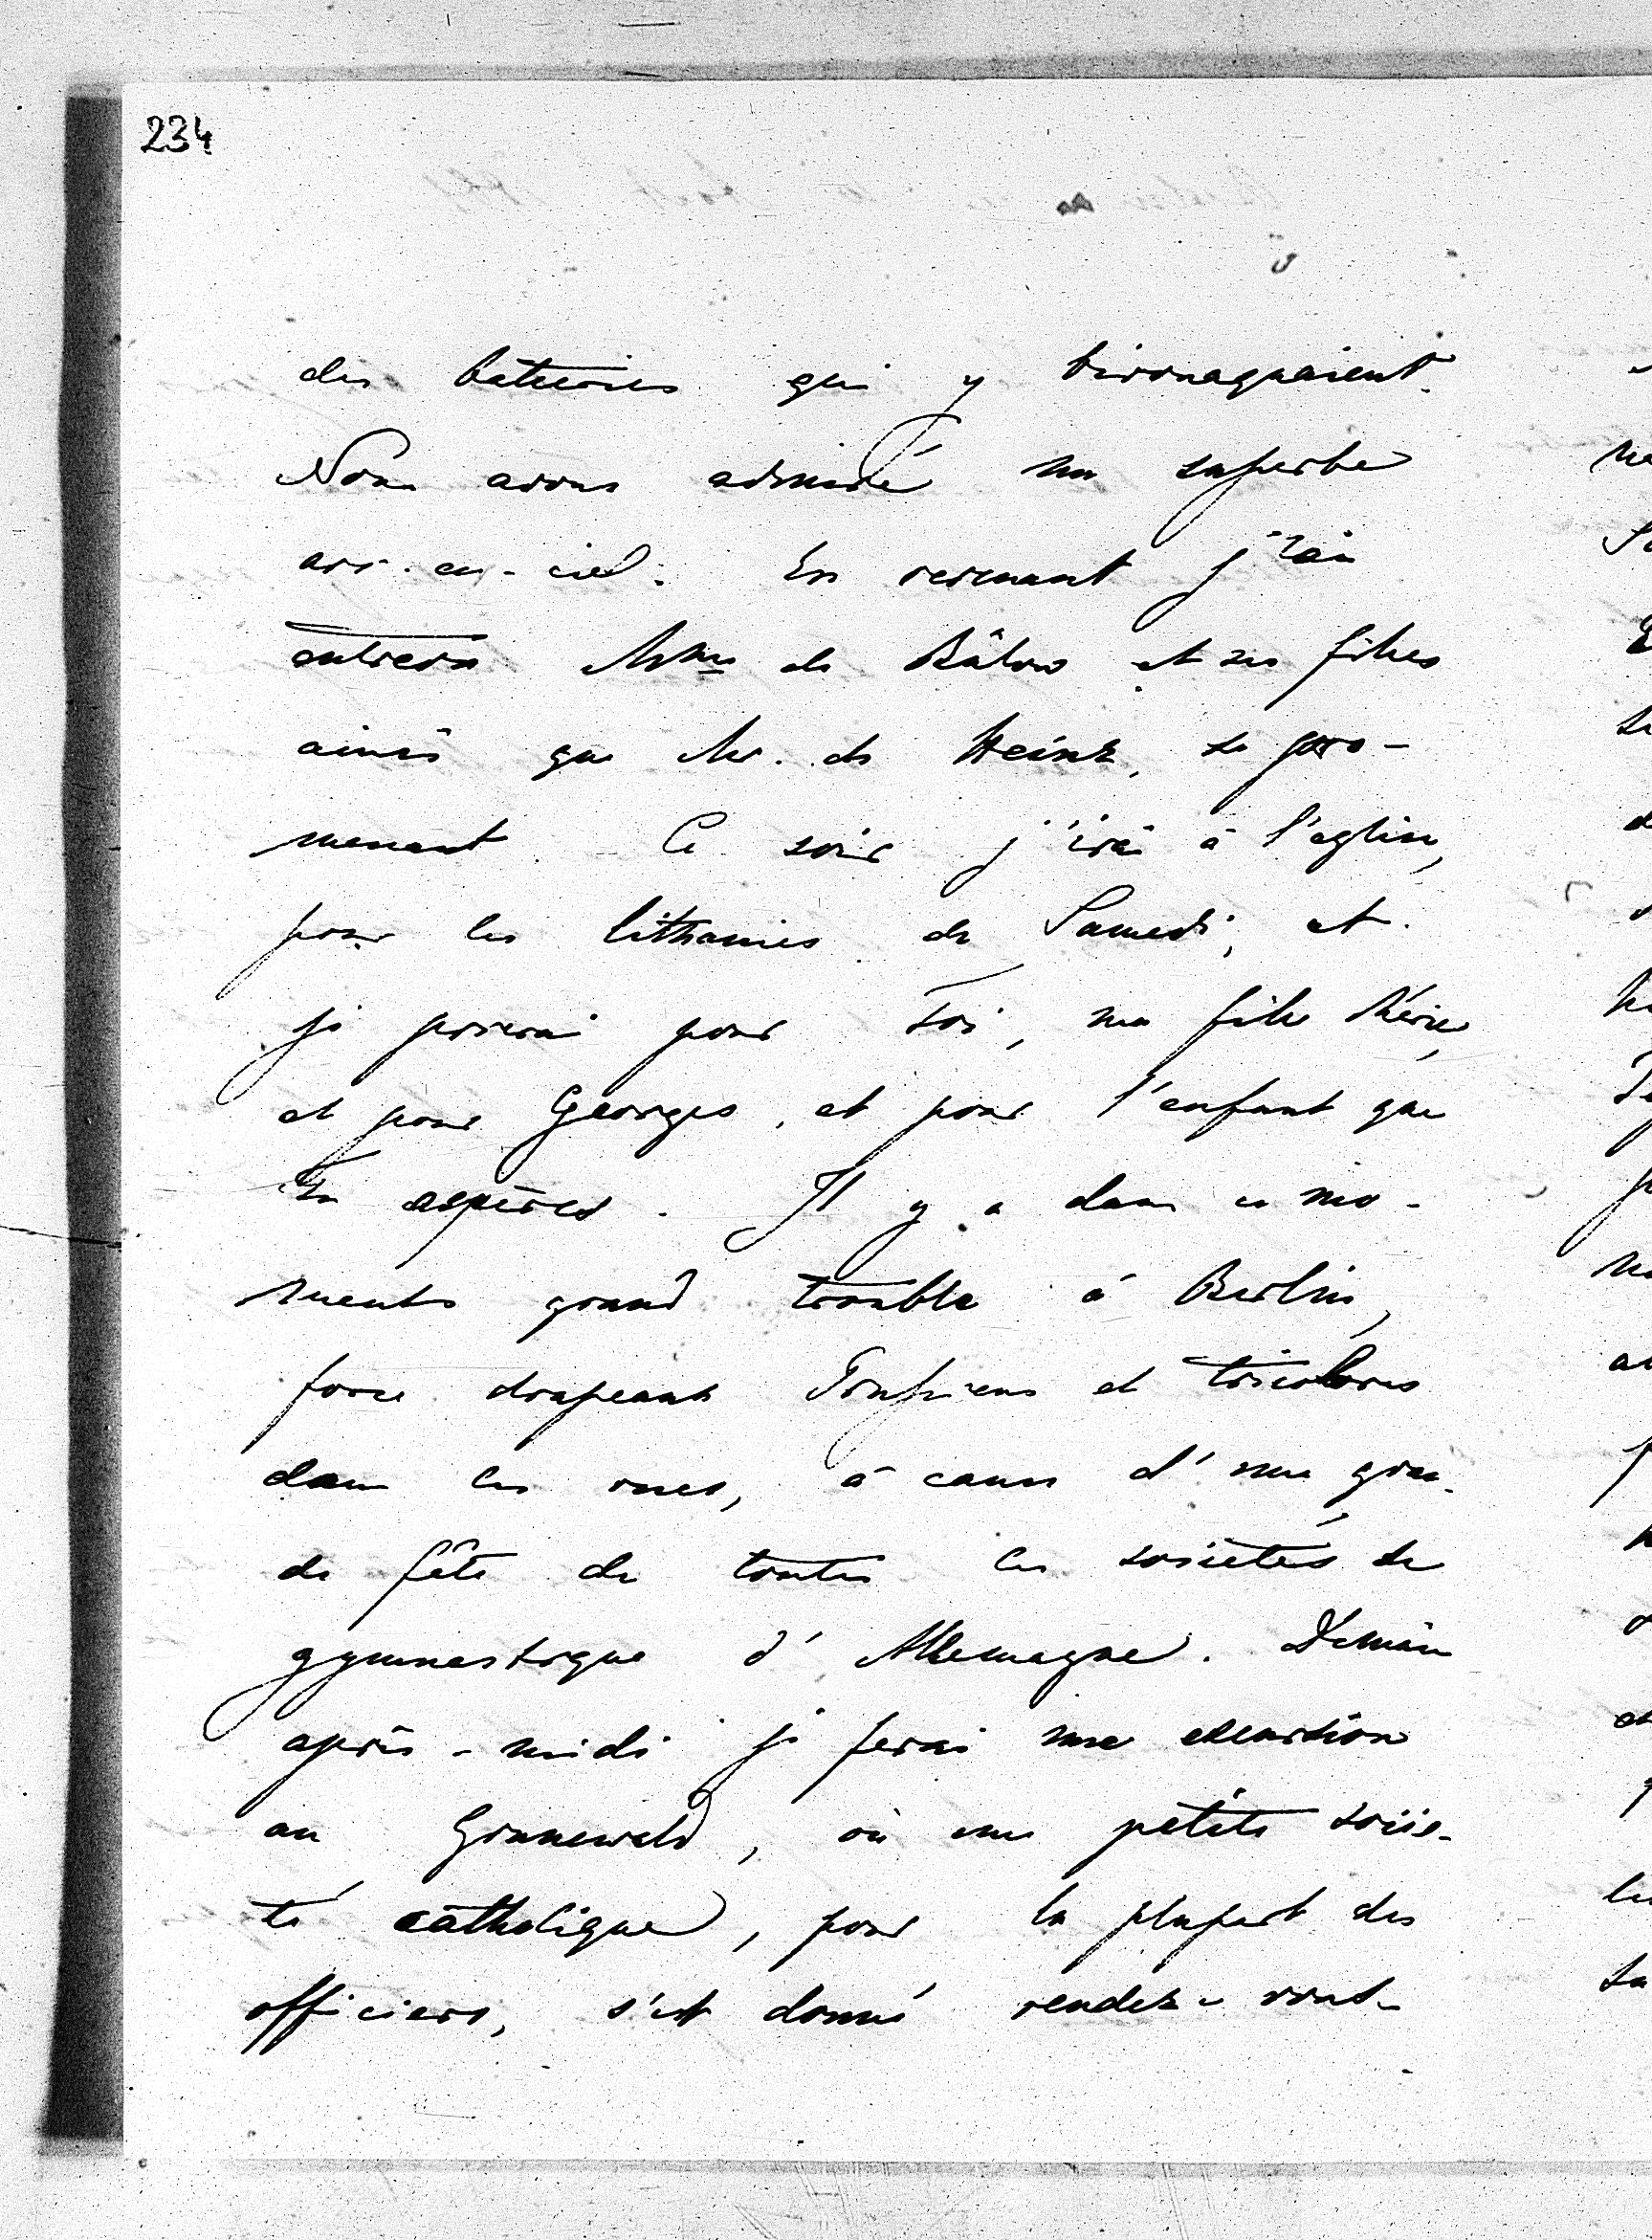 234
des batteries qui y bivouaquaient.
Nous avons admiré un superbe
arc-en-ciel. En revenant j'ai
entrevu Mme de Bülow et ses filles
ainsi que Mr. de Heintz, se pro-
menant. Ce soir j'irai à l'eglise,
pour les lithanies de Samedi, et
je prierai pour toi, ma fille chérie,
et pour Georges, et pour l'enfant que
Tu espères. Il y a dans ce mo-
ments grand trouble à Berlin,
force drapeaux Prussiens et tricolores
dans les rues, à cause d'une gran-
de fête de toutes les sociétés de
gymnastique d'Allemagne. Demain
après-midi je ferai une excursion
au Grunewald, où une petite socié-
té catholique, pour la plupart des
officiers, s'est donné rendez-vous.